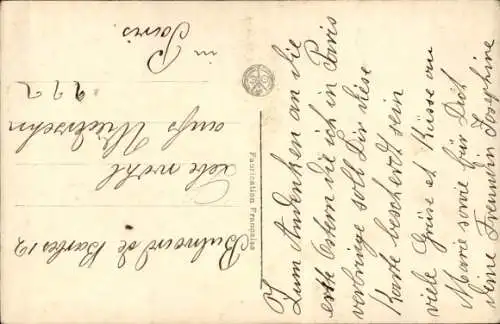 Zum Andenken an die
erste Ostern die ich in Paris
verbringe soll Dir diese
Karte bescherdt sein
viele Grüse et Küsse an
Marie sowie für Dich
deine Freundin Josephine
Fabrication Française
Bulvard de Barbes 12
Lebe wohl
aufs Wiedersehn
???
in Paris.